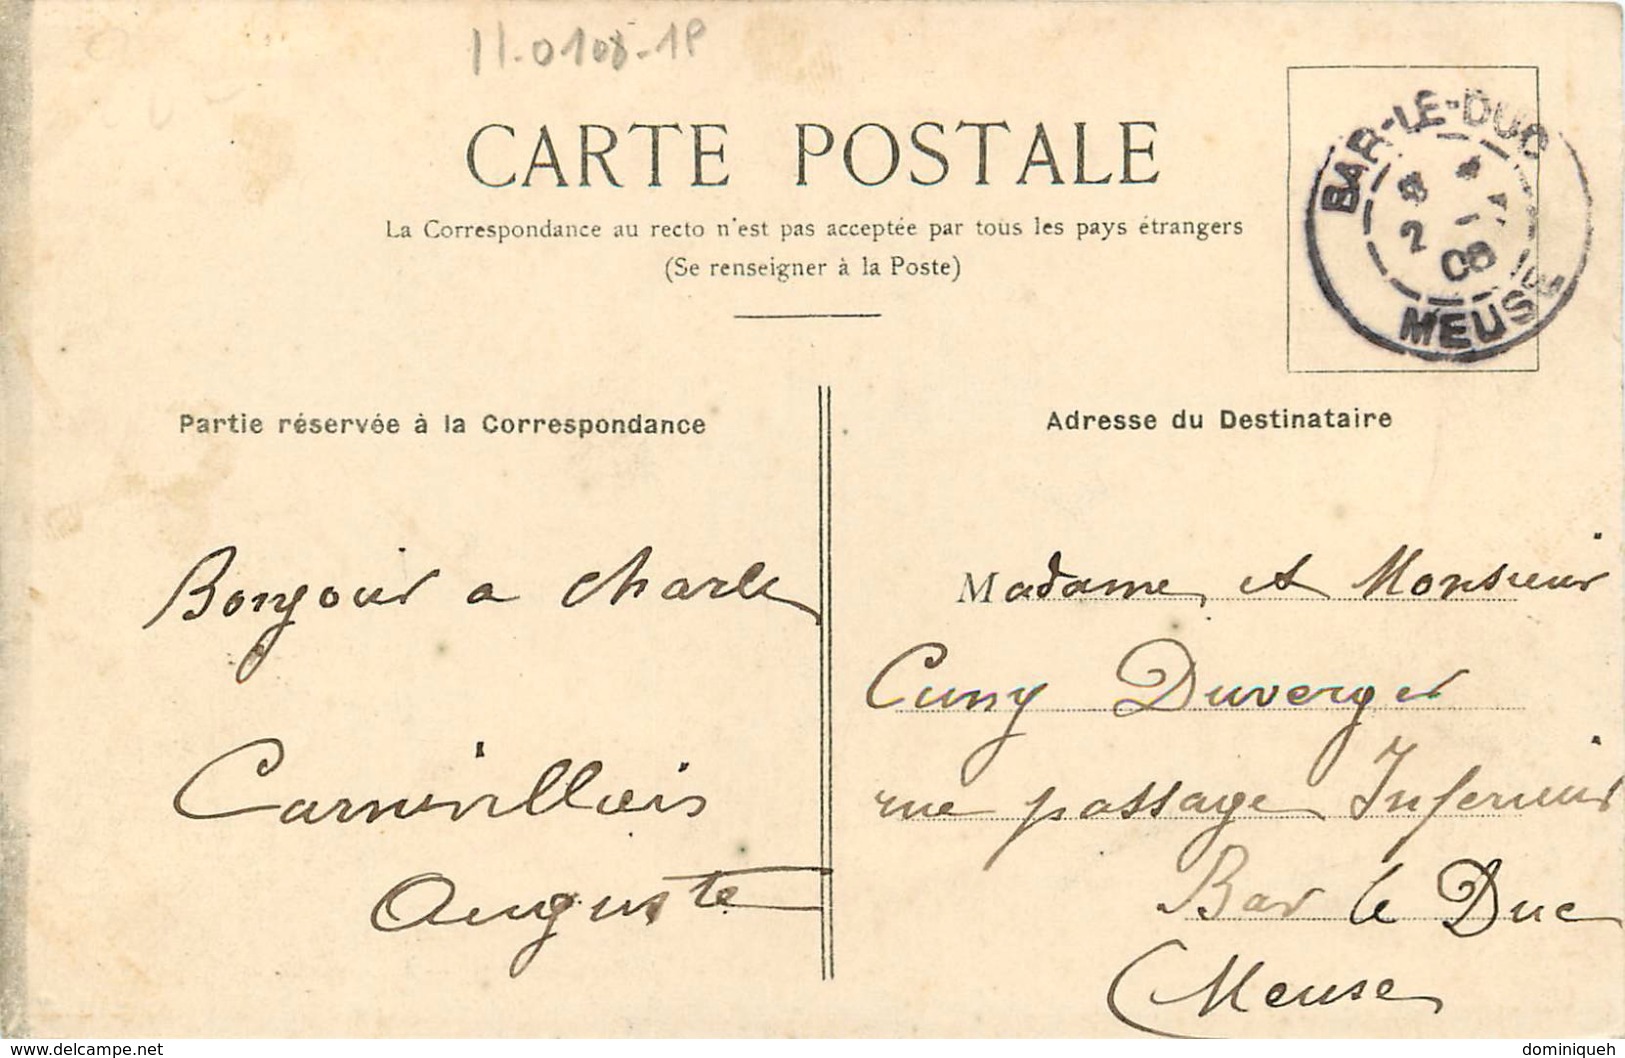 11-0108-1P
CARTE POSTALE
La Correspondance au recto n'est pas acceptée par tous les pays étrangers
(Se renseigner à la Poste)
BAR-LE-DUC
2
08
MEUSE
Partie réservée à la Correspondance
Adresse du Destinataire
Bonjour a charle
Auguste
Madame et Monsieur
Cuny Duverger
rue passage Inferieur
Bar le Duc
Meuse
www.delcampe.net
dominiqueh